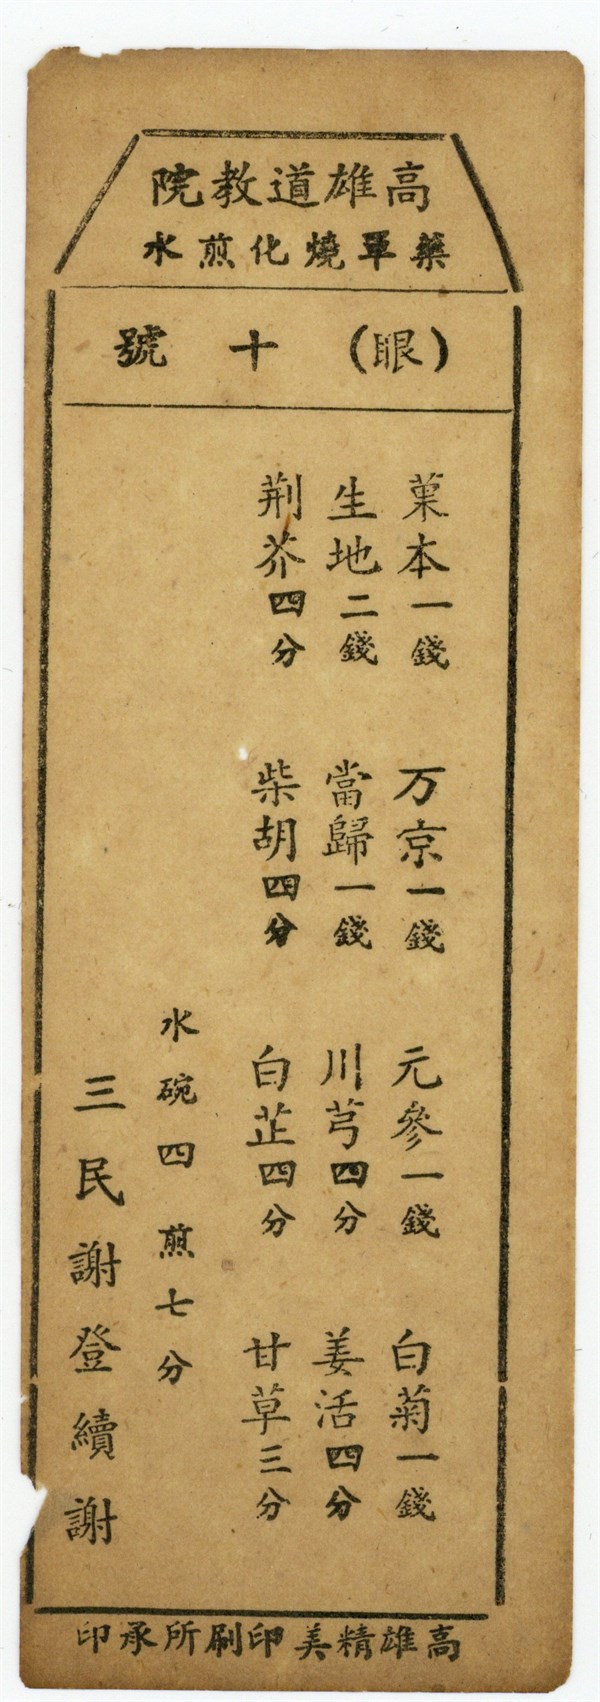 高雄道教院
藥單燒化煎水
(眼)十號
菓本一錢 万京一錢 元參一錢 白菊一錢
生地二錢 當歸一錢 川芎四分 姜活四分
荆芥四分 柴胡四分 白芷四分 甘草三分
水碗四煎七分
三民謝登續謝
高雄精美印刷所承印